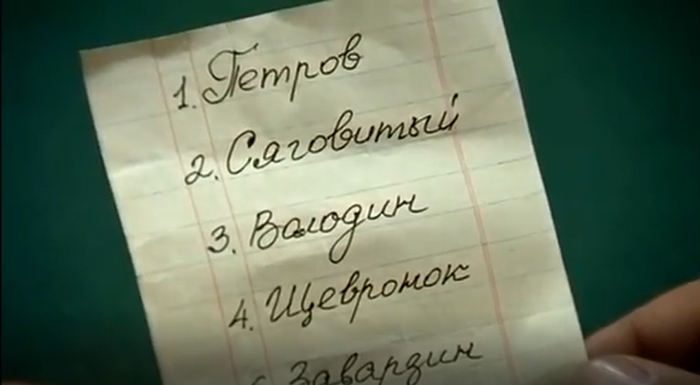 1. Петров
2. Сяговитый
3. Володин
4. Щевронок
Завардин